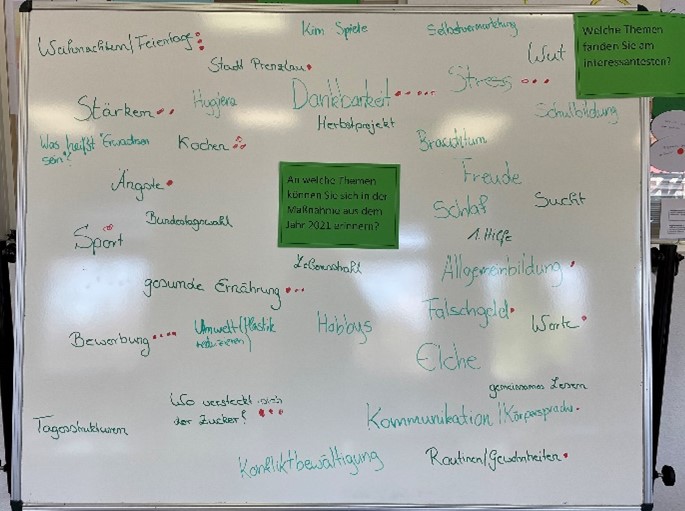 Kim Spiele
Selbstvermarktung
Welche Themen
fanden Sie am
interessantesten?
Weihnachten/Feiertage
Wut
Stadt Prenzlau
Stress
Stärken
Hygiene
Dankbarkeit
Herbstprojekt
Schulbildung
Was heißt "Erwachsen
sein"?
Kochen
Brauchtum
Freude
Ängste
An welche Themen
können Sie sich in der
Maßnahme aus dem
Jahr 2021 erinnern?
Schlaf
Sucht
Bundestagswahl
Sport
1. Hilfe
Allgemeinbildung
gesunde Ernährung
Falschgeld
Werte
Bewerbung
Umwelt/Plastik
reduzieren
Hobbys
Elche
gemeinsames Lesen
Wo versteckt sich
der Zucker?
Tagesstrukturen
Kommunikation/Körpersprache
Konfliktbewältigung
Routinen/Gewohnheiten